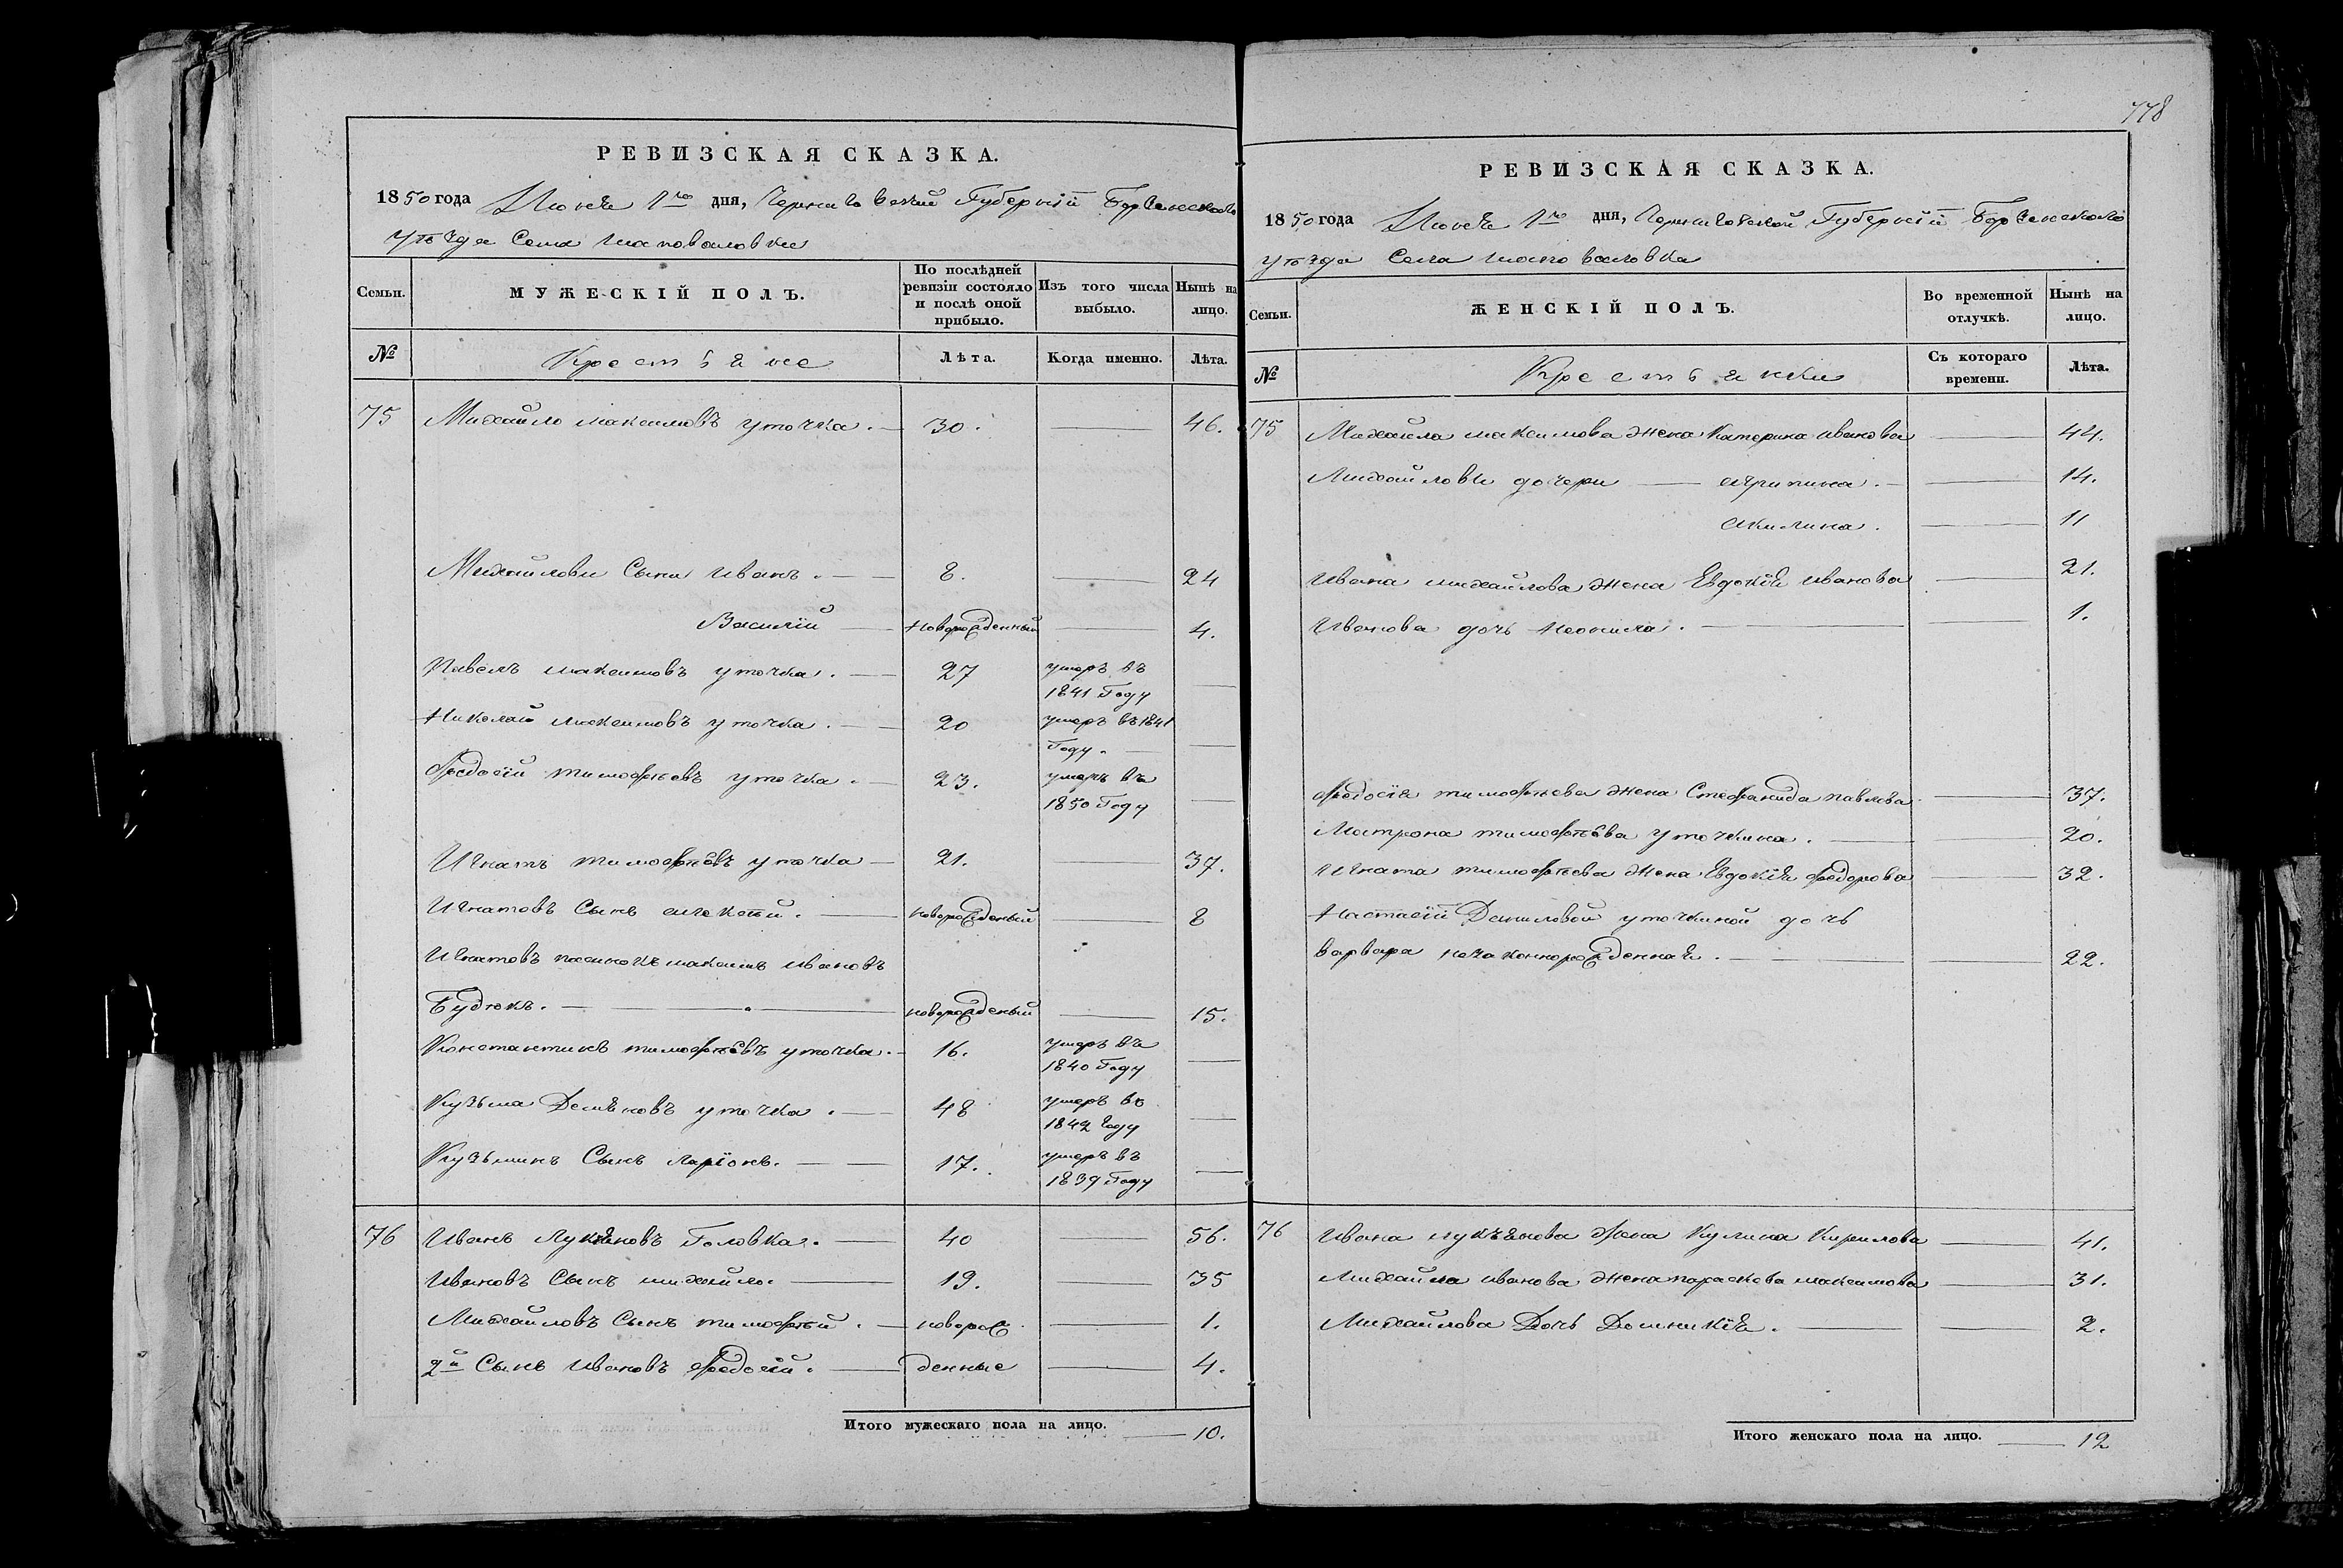 РЕВИЗСКАЯ СКАЗКА.
1850 года Июня 1го дня, Черниговской Губерніи Борзенского
уѣзда Села Шаповаловки
Семьи.
МУЖЕСКІЙ ПОЛЪ.
По послѣдней ревизіи состояло и послѣ оной прибыло.
Изъ того числа выбыло.
Нынѣ на лицо.
№ Крестьяне Лѣта. Когда именно. Лѣта.
75 Михайло максимовъ уточка. — 30. — 46.
Михайлови Сыни Иванъ. — 8. — 24
Василій — новорожденный — 4.
Павелъ максимовъ уточка. — 27 умеръ въ 1841 Году —
Николай максимовъ уточка. — 20 умеръ въ 1841 Году. —
Федосій тимофѣевъ уточка. — 23. умеръ въ 1850 Году —
Игнатъ тимофѣевъ уточка — 21. — 37.
Игнатовъ Сынъ алексѣй. — новорожденый — 8
Игнатовъ пасинокъ максимъ ивановъ
Будюкъ. — новорожденый — 15.
Константинъ тимофѣевъ уточка. — 16. умеръ въ 1840 Году —
Кузьма Демяновъ уточка. — 48 умеръ въ 1842 Году —
Кузьминъ Сынъ ларіонъ. — 17. умеръ въ 1839 Году —
76 Иванъ Лукяновъ Головка. — 40 — 56.
Ивановъ Сынъ михайло. — 19. — 35
Михайловъ Сынъ тимофѣй. — новорож — 1.
2й Сынъ Ивановъ Федосій. — денные — 4.
Итого мужескаго пола на лицо. — 10.
778
РЕВИЗСКАЯ СКАЗКА.
1850 года Июня 1го дня, Черниговской Губерніи Борзенского
уѣзда Села шаповаловки
Семьи.
ЖЕНСКІЙ ПОЛЪ.
Во временной отлучкѣ.
Нынѣ на лицо.
№ Крестьянки Съ котораго времени. Лѣта.
75 Михайла максимова жена Катерина иванова — 44.
Михайлови дочери — агрипина. — 14.
акилина. — 11
Ивана михайлова жена Евдокія иванова — 21.
Иванова дочь Неонила. — 1.
Федосія тимофѣева жена Стефанида павлова — 37.
Мотрона тимофѣева уточкина. — 20.
Игната тимофѣева жена Евдокія Федорова — 32.
Настасіи Даниловой уточкиной дочь
варвара незаконнорожденная. — 22.
76 Ивана лукъянова жена Кулина Кирилова — 41.
Михайла иванова жена параскева максимова — 31.
Михайлова Дочь Домникія. — 2.
Итого женскаго пола на лицо. — 12